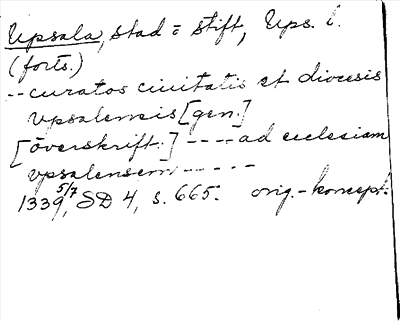 Upsala, stad = stift, Ups. l.
(forts.)
-- curatos ciuitatis et diocesis
vpsalensis [gen.]
[överskrift.] ---- ad ecclesiam
vpsalensem -----
1339 5/7, SD 4, s. 665. orig.-koncept.